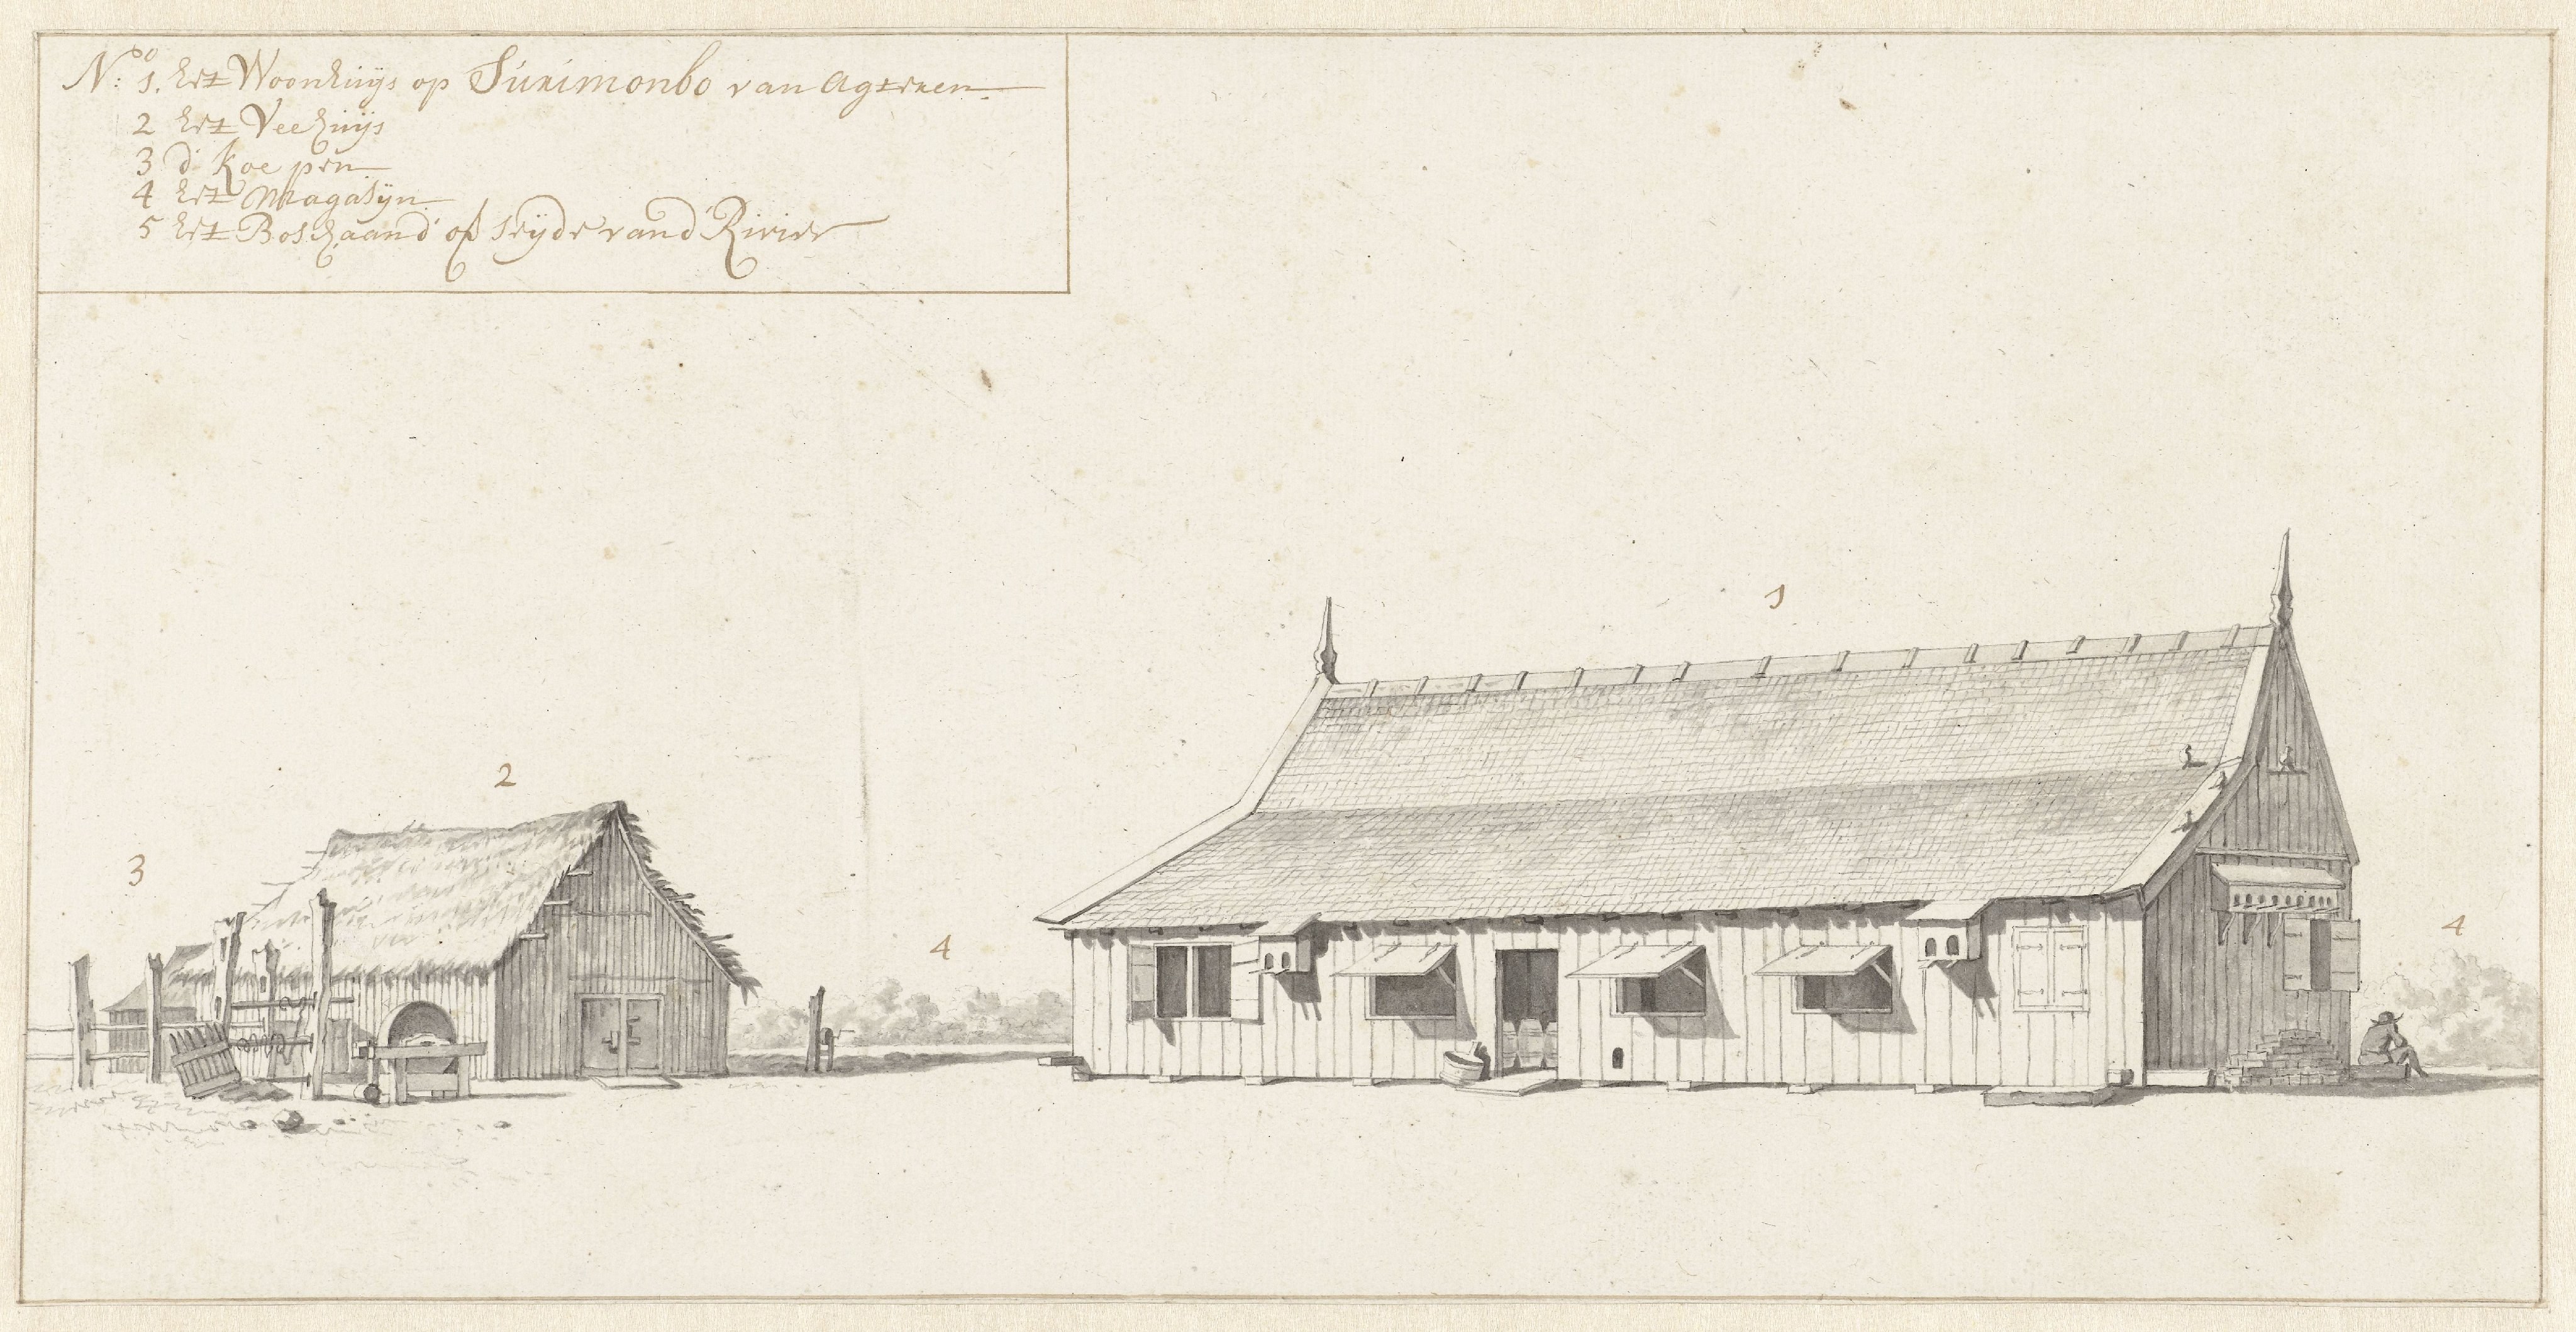 N:oo 1. het Woonhuijs op Surimonbo van Agteren
2 het Veehuijs
3 d' koe pen
4 het Magasyn
5 het Bosch aand' of seijde vand' Rivier
1
2
3
4
4